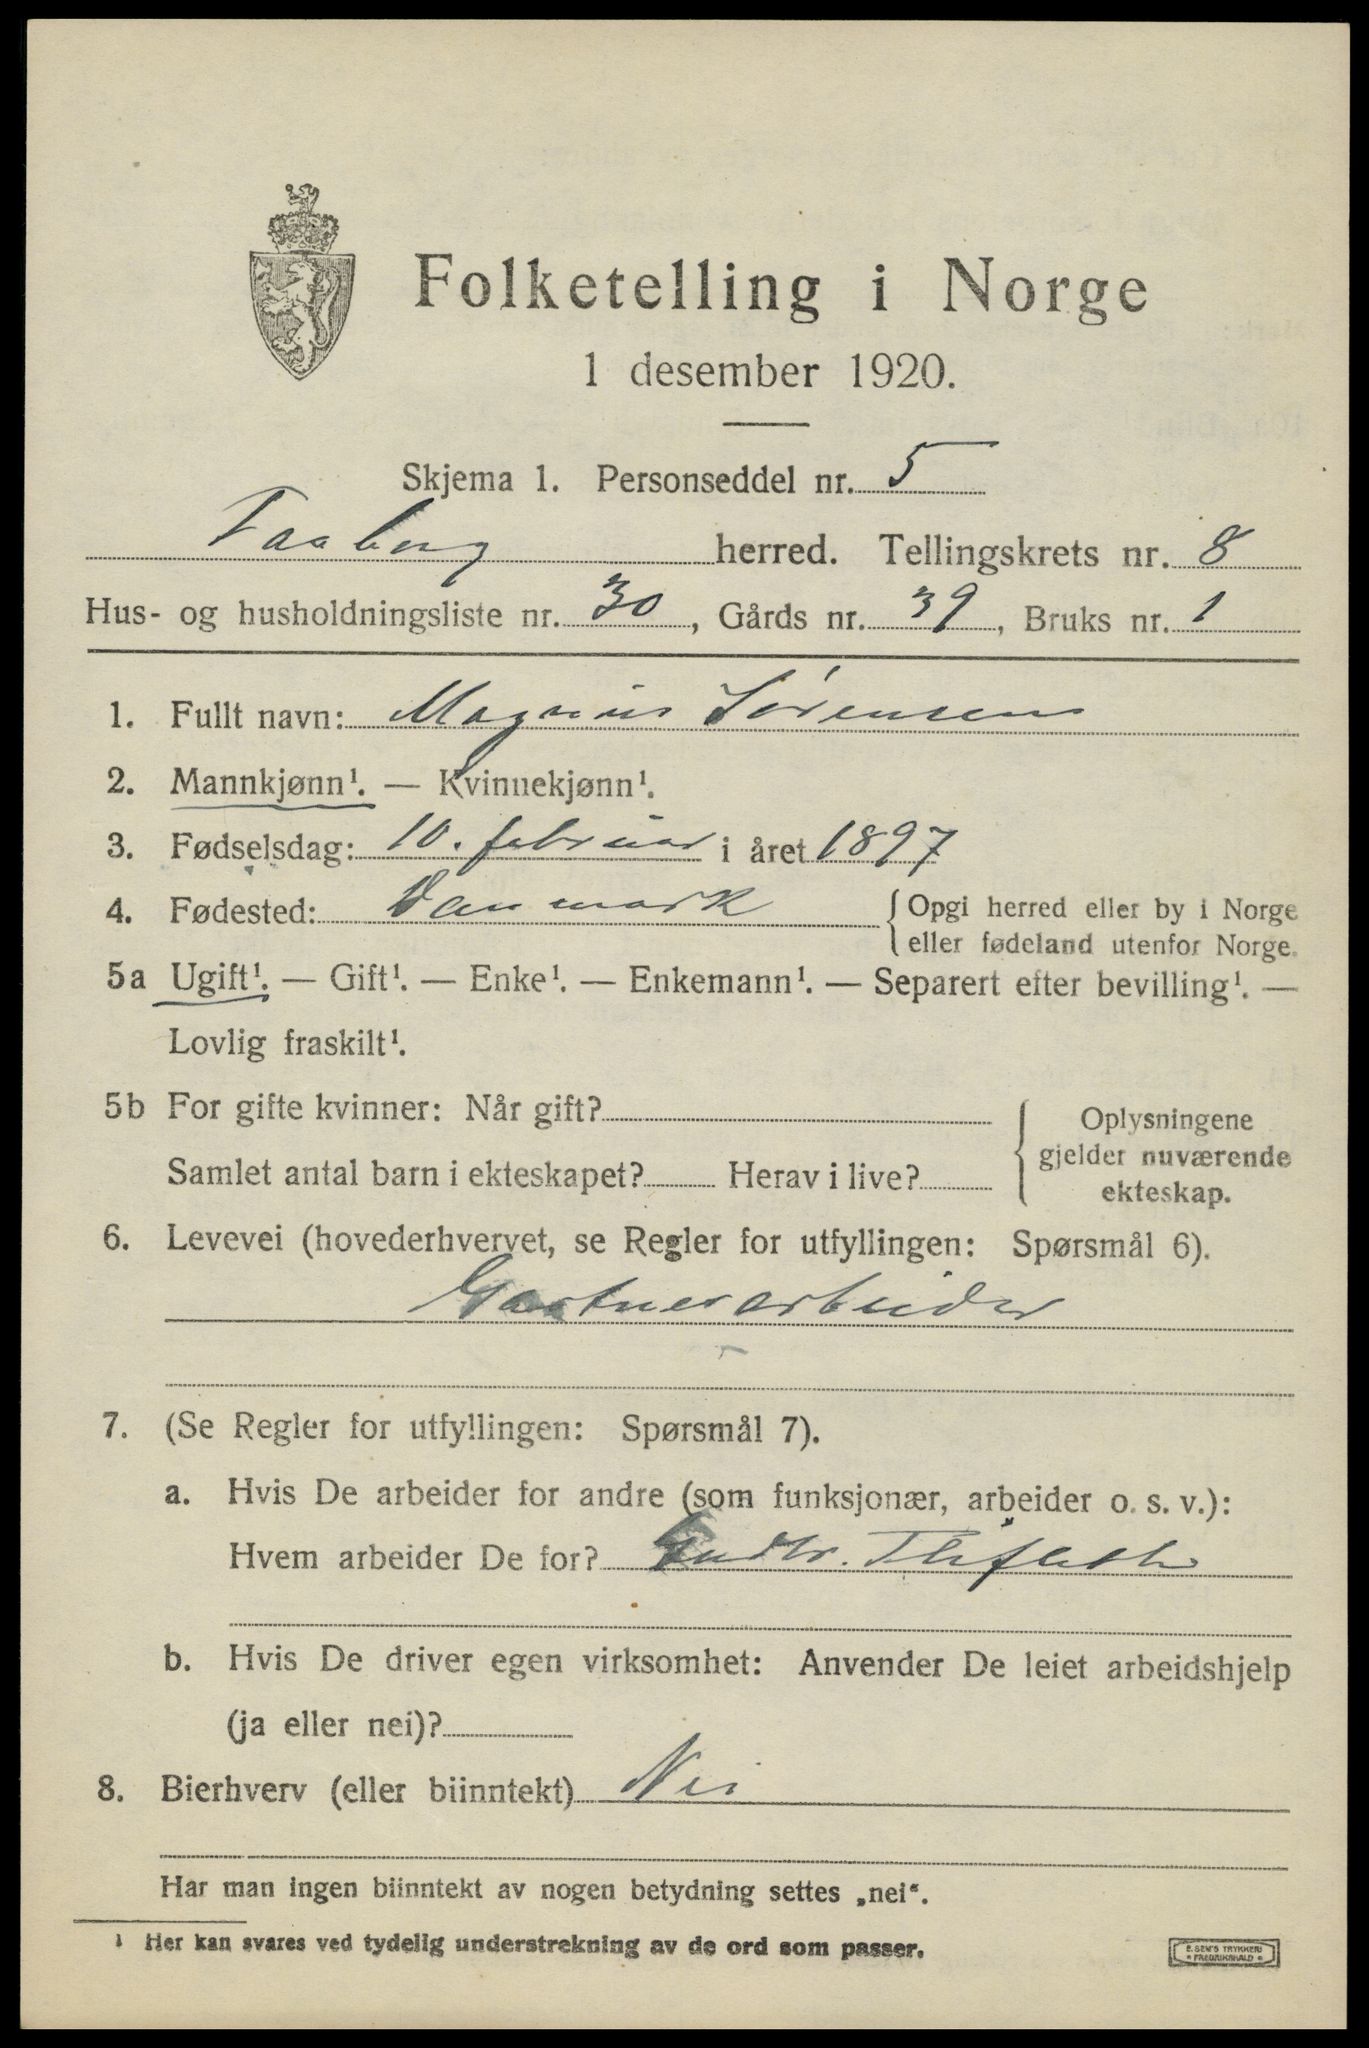 Folketelling i Norge
1 desember 1920.
Skjema 1. Personseddel nr. 5
Faaberg herred. Tellingskrets nr. 8
Hus- og husholdningsliste nr. 30, Gårds nr. 39, Bruks nr. 1
1. Fullt navn: Magnus Sørensen
2. Mannkjønn¹. — Kvinnekjønn¹.
3. Fødselsdag: 10. februar i året 1897
4. Fødested: Danmark {Opgi herred eller by i Norge
eller fødeland utenfor Norge.
5a Ugift¹. — Gift¹. — Enke¹. — Enkemann¹. — Separert efter bevilling¹. —
Lovlig fraskilt¹.
5b For gifte kvinner: Når gift? {Oplysningene
gjelder nuværende
Samlet antal barn i ekteskapet? Herav i live?
ekteskap.
6. Levevei (hovederhvervet, se Regler for utfyllingen: Spørsmål 6).
Gartnerarbeider
7. (Se Regler for utfyllingen: Spørsmål 7).
a. Hvis De arbeider for andre (som funksjonær, arbeider o. s. v.):
Hvem arbeider De for? Gudbr.
b. Hvis De driver egen virksomhet: Anvender De leiet arbeidshjelp
(ja eller nei)?
8. Bierhverv (eller biinntekt) Nei
Har man ingen biinntekt av nogen betydning settes „nei“.
¹ Her kan svares ved tydelig understrekning av de ord som passer.
E. SEM'S TRYKKERI
• FREDRIKSHALD •